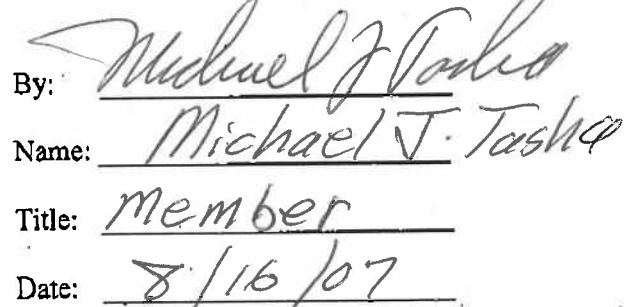 By: Michael J Tasha
Name: Michael J. Tasha
Title: Member
Date: 8/16/07